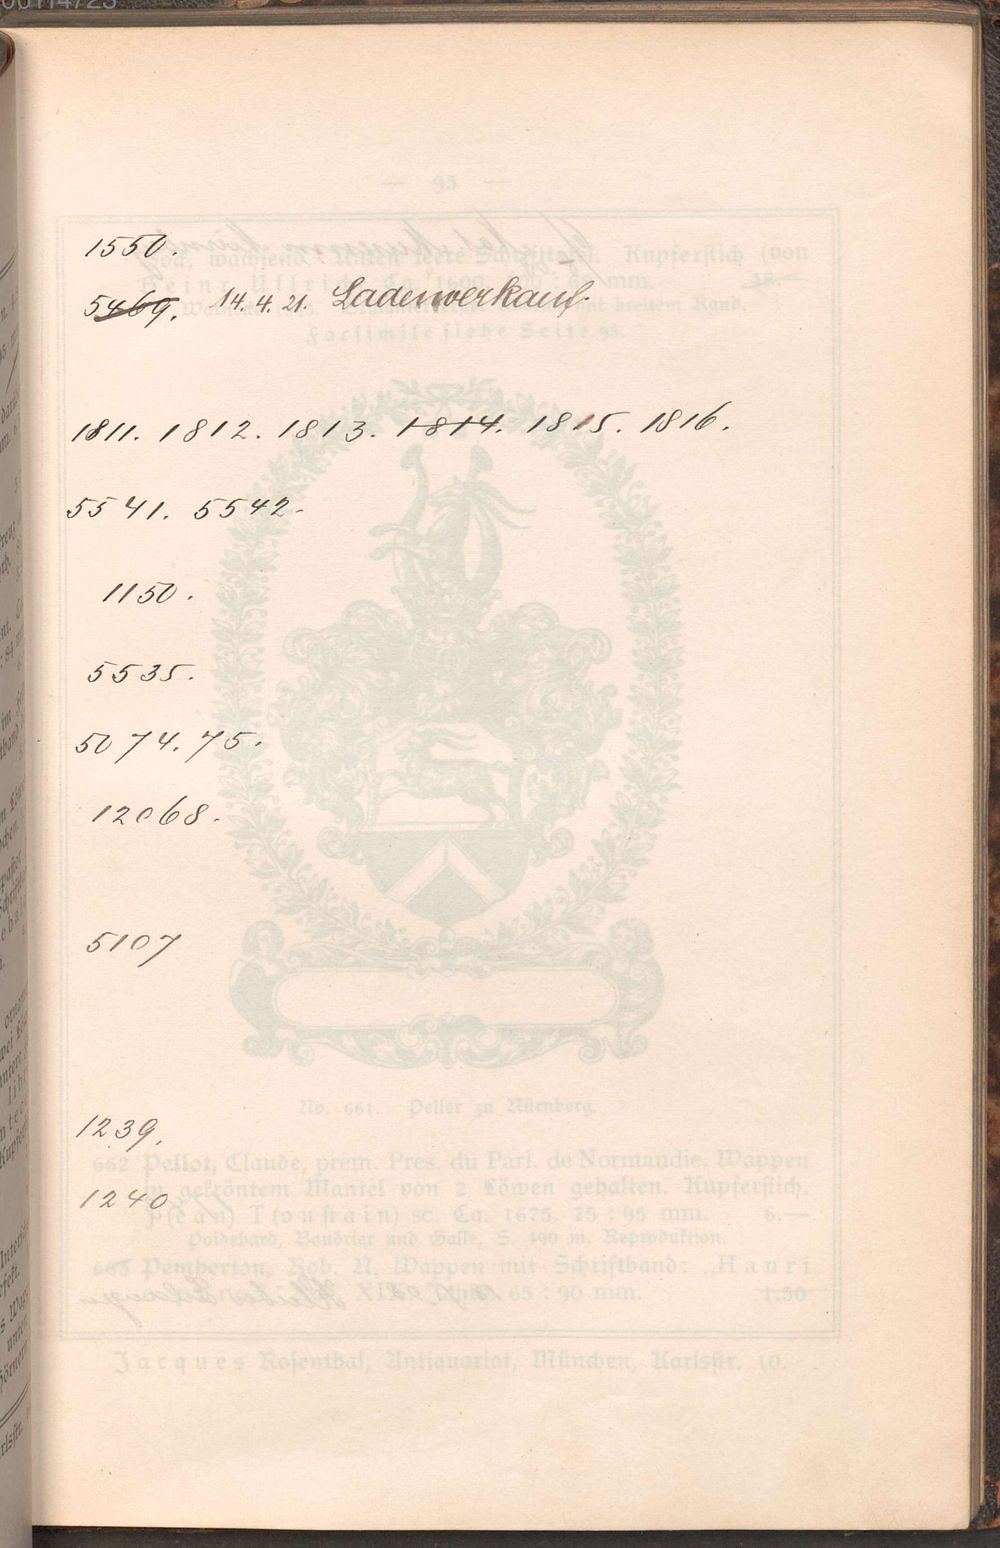 1550.
5469. 14.4.21. Ladenverkauf.
1811. 1812. 1813. 1814. 1815. 1816.
5541. 5542.
1150.
5535.
5074. 75.
12068.
5107
1239.
1240
— 95 —
Kupferstich (von
Facsimile siehe Seite 95.
No. 661. Peller zu Nürnberg.
662 Pellot, Claude, prem. Pres. du Parl. de Normandie. Wappen
in gekröntem Mantel von 2 Löwen gehalten. Kupferstich.
J(ean) T(oustain) sc. Ca. 1675. 75 : 95 mm. 6.—
Poidebard, Baudrier und Galle, S. 490 m. Reproduktion.
663 Pemberton, Rob. N. Wappen mit Schriftband: „Hanri
65 : 90 mm. 1.50
Jacques Rosenthal, Antiquariat, München, Karlstr. 10.